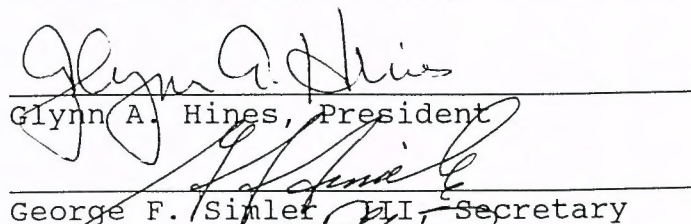 Glynn A. Hines
Glynn A. Hines, President
George F. Simler, III, Secretary